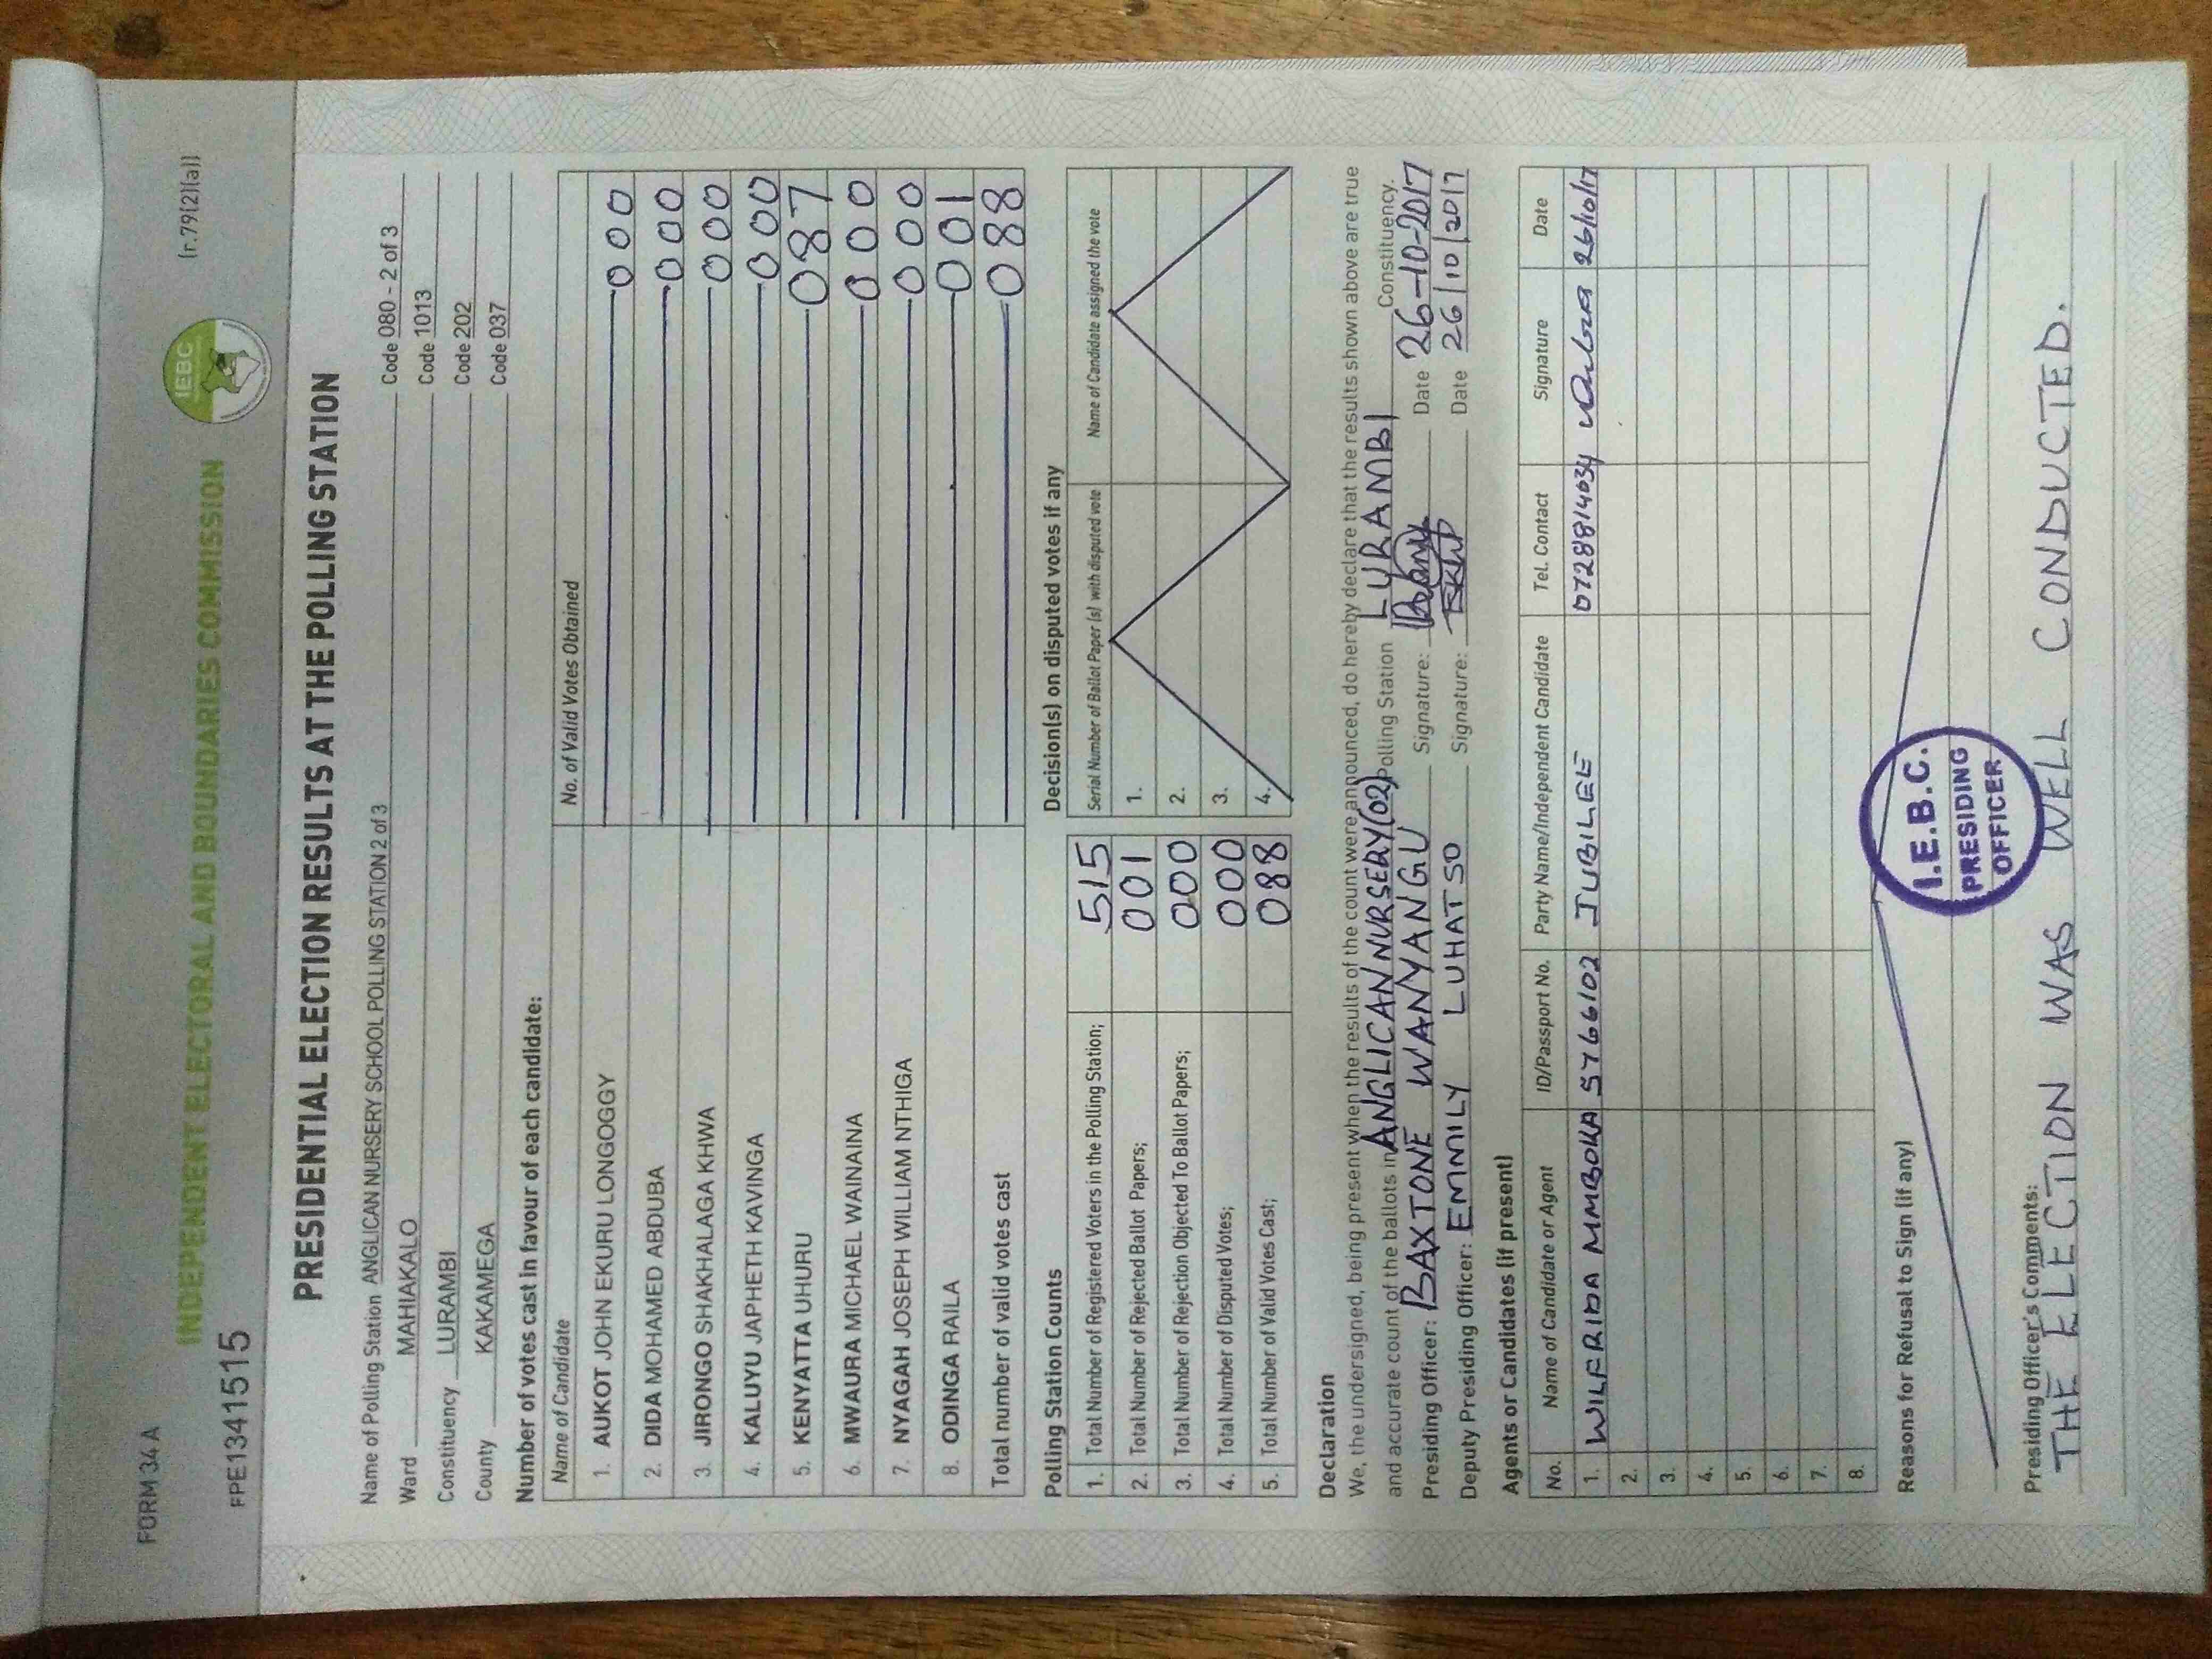 FORM 34 A
(r.79(2)(a))
INDEPENDENT ELECTORAL AND BOUNDARIES COMMISSION
IEBC
FPE1341515
PRESIDENTIAL ELECTION RESULTS AT THE POLLING STATION
Name of Polling Station ANGLICAN NURSERY SCHOOL POLLING STATION 2 of 3 Code 080 - 2 of 3
Ward MAHIAKALO Code 1013
Constituency LURAMBI Code 202
County KAKAMEGA Code 037
Number of votes cast in favour of each candidate:
Name of Candidate No. of Valid Votes Obtained
1. AUKOT JOHN EKURU LONGOGGY 000
2. DIDA MOHAMED ABDUBA 000
3. JIRONGO SHAKHALAGA KHWA 000
4. KALUYU JAPHETH KAVINGA 000
5. KENYATTA UHURU 087
6. MWAURA MICHAEL WAINAINA 000
7. NYAGAH JOSEPH WILLIAM NTHIGA 000
8. ODINGA RAILA 001
Total number of valid votes cast 088
Polling Station Counts
1. Total Number of Registered Voters in the Polling Station; 515
2. Total Number of Rejected Ballot Papers; 001
3. Total Number of Rejection Objected To Ballot Papers; 000
4. Total Number of Disputed Votes; 000
5. Total Number of Valid Votes Cast; 088
Decision(s) on disputed votes if any
Serial Number of Ballot Paper (s) with disputed vote Name of Candidate assigned the vote
1.
2.
3.
4.
Declaration
We, the undersigned, being present when the results of the count were announced, do hereby declare that the results shown above are true
and accurate count of the ballots in ANGLICAN NURSERY (02) Polling Station LURAMBI Constituency.
Presiding Officer: BAXTONE WANYANGU Signature: Date 26-10-2017
Deputy Presiding Officer: EMMILY LUHATSO Signature: Date 26/10/2017
Agents or Candidates (if present)
No. Name of Candidate or Agent ID/Passport No. Party Name/Independent Candidate Tel. Contact Signature Date
1. WILFRIDA MMBOKA 5766102 JUBILEE 0728814034 26/10/17
2.
3.
4.
5.
6.
7.
8.
Reasons for Refusal to Sign (if any)
I.E.B.C.
PRESIDING
OFFICER
Presiding Officer's Comments:
THE ELECTION WAS WELL CONDUCTED.